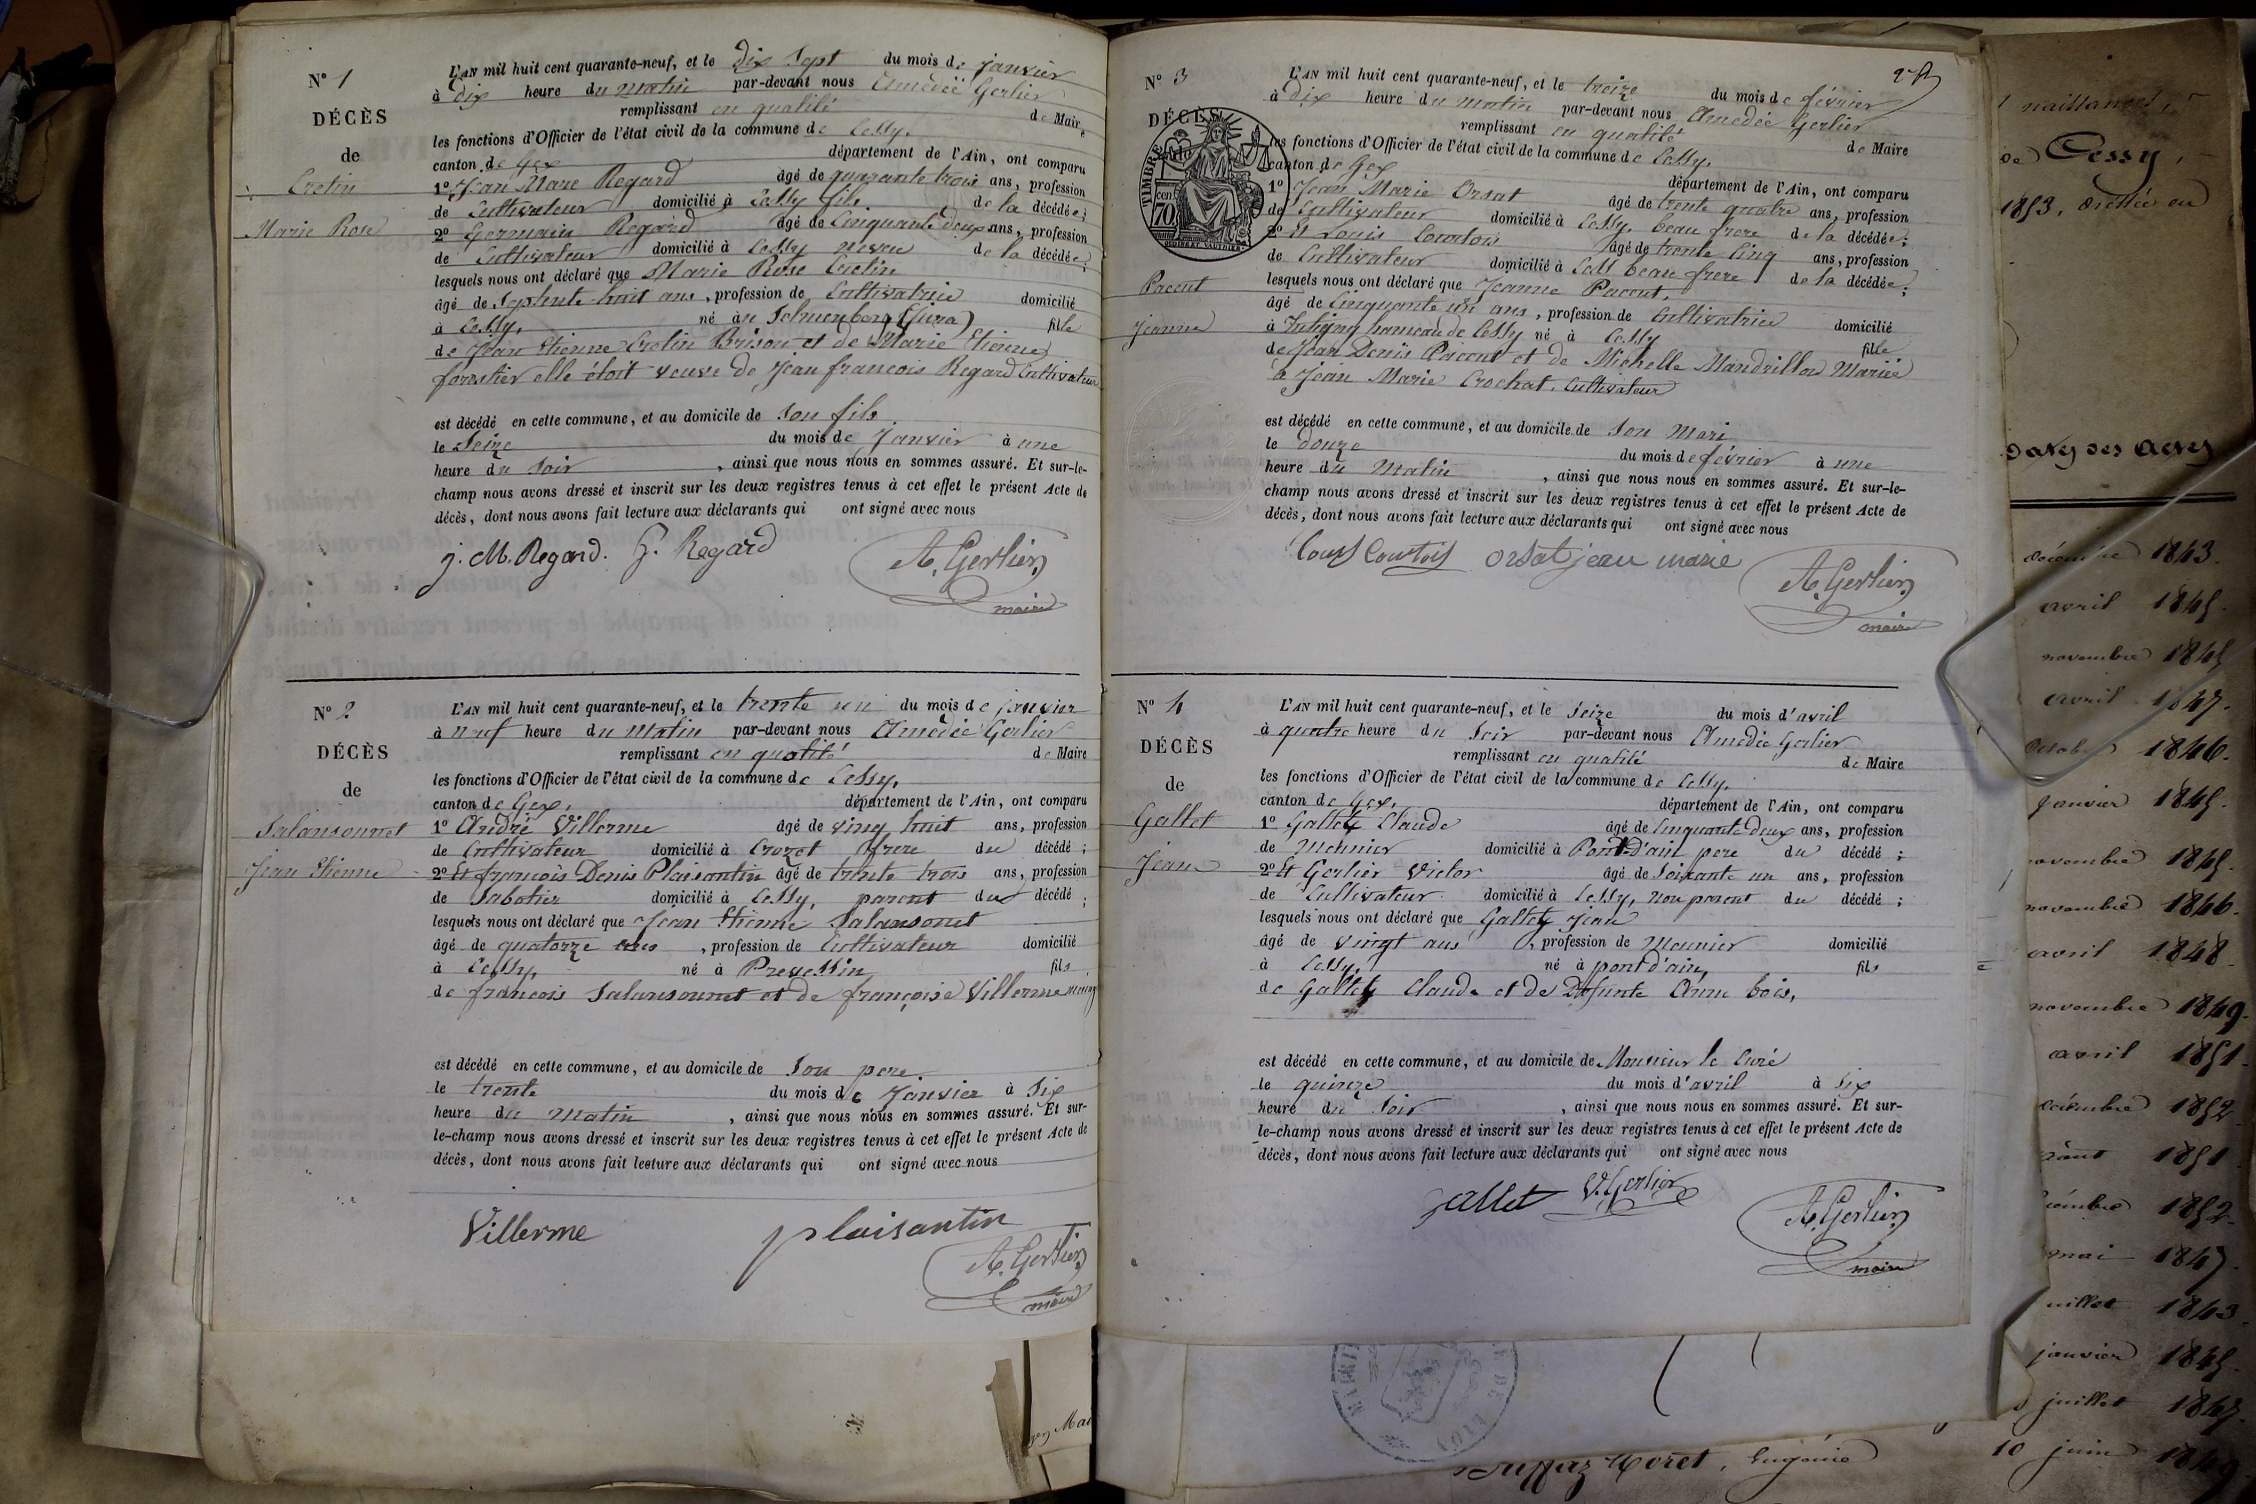 N° 1
DÉCÈS
de
Cretin
Marie Rose
L'AN mil huit cent quarante-neuf, et le dix sept du mois de janvier
à dix heure du matin par-devant nous Amédée Gerlier
remplissant en qualité de Maire
les fonctions d'Officier de l'état civil de la commune de Cessy,
canton de Gex département de l'Ain, ont comparu
1° Jean Marc Regard âgé de quarante trois ans, profession
de Cultivateur domicilié à Cessy fils de la décédée;
2° Germain Regard âgé de Cinquante deux ans, profession
de Cultivateur domicilié à Cessy neveu de la décédée;
lesquels nous ont déclaré que Marie Rose Cretin
âgé de Septente huit ans, profession de Cultivatrice domicilié
à Cessy, né à (jura) fille
de Jean Etienne Cretin Brison et de Marie Etienne
forestier elle étoit veuve de Jean francois Regard Cultivateur
est décédé en cette commune, et au domicile de Son fils
le Seize du mois de Janvier à une
heure du Soir, ainsi que nous nous en sommes assuré. Et sur-le-
champ nous avons dressé et inscrit sur les deux registres tenus à cet effet le présent Acte de
décès, dont nous avons fait lecture aux déclarants qui ont signé avec nous
j. M. Regard. G. Regard A. Gerlier
maire
N° 2
DÉCÈS
de
Salansonnet
Jean Etienne
L'AN mil huit cent quarante-neuf, et le trente un du mois de janvier
à neuf heure du Matin par-devant nous Amédée Gerlier
remplissant en qualité de Maire
les fonctions d'Officier de l'état civil de la commune de Cessy,
canton de Gex, département de l'Ain, ont comparu
1° André Villerme âgé de ving huit ans, profession
de Cultivateur domicilié à Crozet frere du décédé;
2° Et françois Denis Plaisantin âgé de trente trois ans, profession
de Sabotier domicilié à Cessy, parent du décédé;
lesquels nous ont déclaré que Jean Etienne Salansonnet
âgé de quatorze ans, profession de Cultivateur domicilié
à Cessy, né à Prevessin fils
de francois Salansonnet et de françoise Villerme
est décédé en cette commune, et au domicile de Son pere
le trente du mois de Janvier à Six
heure du Matin, ainsi que nous nous en sommes assuré. Et sur-
le-champ nous avons dressé et inscrit sur les deux registres tenus à cet effet le présent Acte de
décès, dont nous avons fait lecture aux déclarants qui ont signé avec nous
Villerme plaisantin
A. Gerlier
maire
N° 3
DÉCÈS
TIMBRE
70
Pacout
Jeanne
L'AN mil huit cent quarante-neuf, et le treize du mois de février
à dix heure du matin par-devant nous Amédée Gerlier
remplissant en qualité de Maire
les fonctions d'Officier de l'état civil de la commune de Cessy,
canton de Gex département de l'Ain, ont comparu
1° Jean Marie Orsat âgé de trente quatre ans, profession
de Cultivateur domicilié à Cessy, beau frere de la décédée;
2° Et Louis Courtois âgé de trente Cinq ans, profession
de Cultivateur domicilié à beau frere de la décédée;
lesquels nous ont déclaré que Jeanne Pacout,
âgé de Cinquante un ans, profession de Cultivatrice domicilié
à hameau de Cessy né à Cessy fille
de Jean Denis Pacout et de Michelle Mandrillon Mariée
à Jean Marie Crochat, Cultivateur
est décédé en cette commune, et au domicile de Son Mari
le douze du mois de février à une
heure du Matin, ainsi que nous nous en sommes assuré. Et sur-le-
champ nous avons dressé et inscrit sur les deux registres tenus à cet effet le présent Acte de
décès, dont nous avons fait lecture aux déclarants qui ont signé avec nous
Louis Courtois orsat jean marie A. Gerlier
maire
N° 4
DÉCÈS
de
Gallet
Jean
L'AN mil huit cent quarante-neuf, et le Seize du mois d'avril
à quatre heure du Soir par-devant nous Amédée Gerlier
remplissant en qualité de Maire
les fonctions d'Officier de l'état civil de la commune de Cessy,
canton de Gex, département de l'Ain, ont comparu
1° Gallet Claude âgé de Cinquante deux ans, profession
de Meunier domicilié à Pont-d'ain pere du décédé;
2° Et Gerlier Victor âgé de Soixante un ans, profession
de Cultivateur domicilié à Cessy, non parent du décédé;
lesquels nous ont déclaré que Gallet Jean
âgé de vingt ans, profession de Meunier domicilié
à Cessy, né à pont d'ain, fils
de Gallet Claude et de Defunte Anne bois,
est décédé en cette commune, et au domicile de Monsieur le Curé
le quinze du mois d'avril à Six
heure du Soir, ainsi que nous nous en sommes assuré. Et sur-
le-champ nous avons dressé et inscrit sur les deux registres tenus à cet effet le présent Acte de
décès, dont nous avons fait lecture aux déclarants qui ont signé avec nous
Gallet V. Gerlier
A. Gerlier
maire
naissances
Cessy,
1853,
Dates des Actes
1843.
avril 1845.
novembre 1845
avril 1847.
1846.
janvier 1845.
novembre 1845.
novembre 1846.
avril 1848
novembre 1849.
avril 1851.
décembre 1852
août 1851
1852.
mai 1847.
juillet 1843.
janvier 1845.
juillet 1847.
10 juin 1849.
Moret, Eugénie